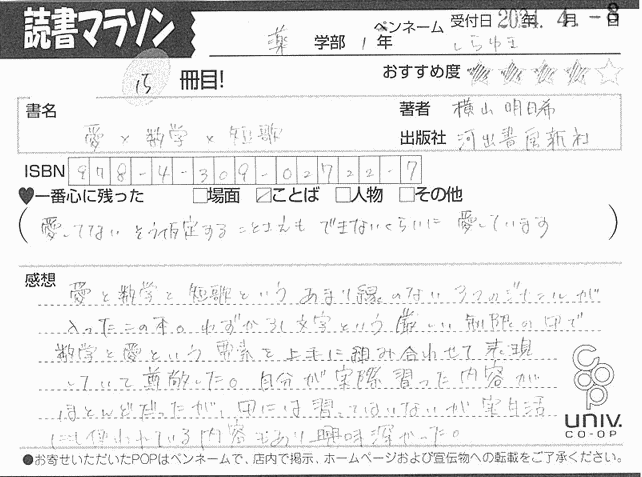 読書マラソン
薬 学部 1年 ペンネーム しらゆき 受付日 2024年 4月 -8日
15 冊目! おすすめ度 ★★★★☆
書名 愛×数学×短歌
著者 横山 明日希
出版社 河出書房新社
ISBN 978-4-309-02722-7
♥一番心に残った □場面 ☑ことば □人物 □その他
(愛してない そう仮定することさえも できないくらいに 愛しています)
感想
愛と数学と短歌という あまり縁のない3つのジャンルが
入ったこの本。わずか31文字という厳しい制限の中で
数学と愛という要素を上手に組み合わせて表現
していて尊敬した。自分が実際習った内容が
ほとんどだったが、中には習ってはいないが実生活
にも使われている内容もあり興味深かった。
coop
UNIV.
CO-OP
●お寄せいただいたPOPはペンネームで、店内で掲示、ホームページおよび宣伝物への転載をご了承ください。